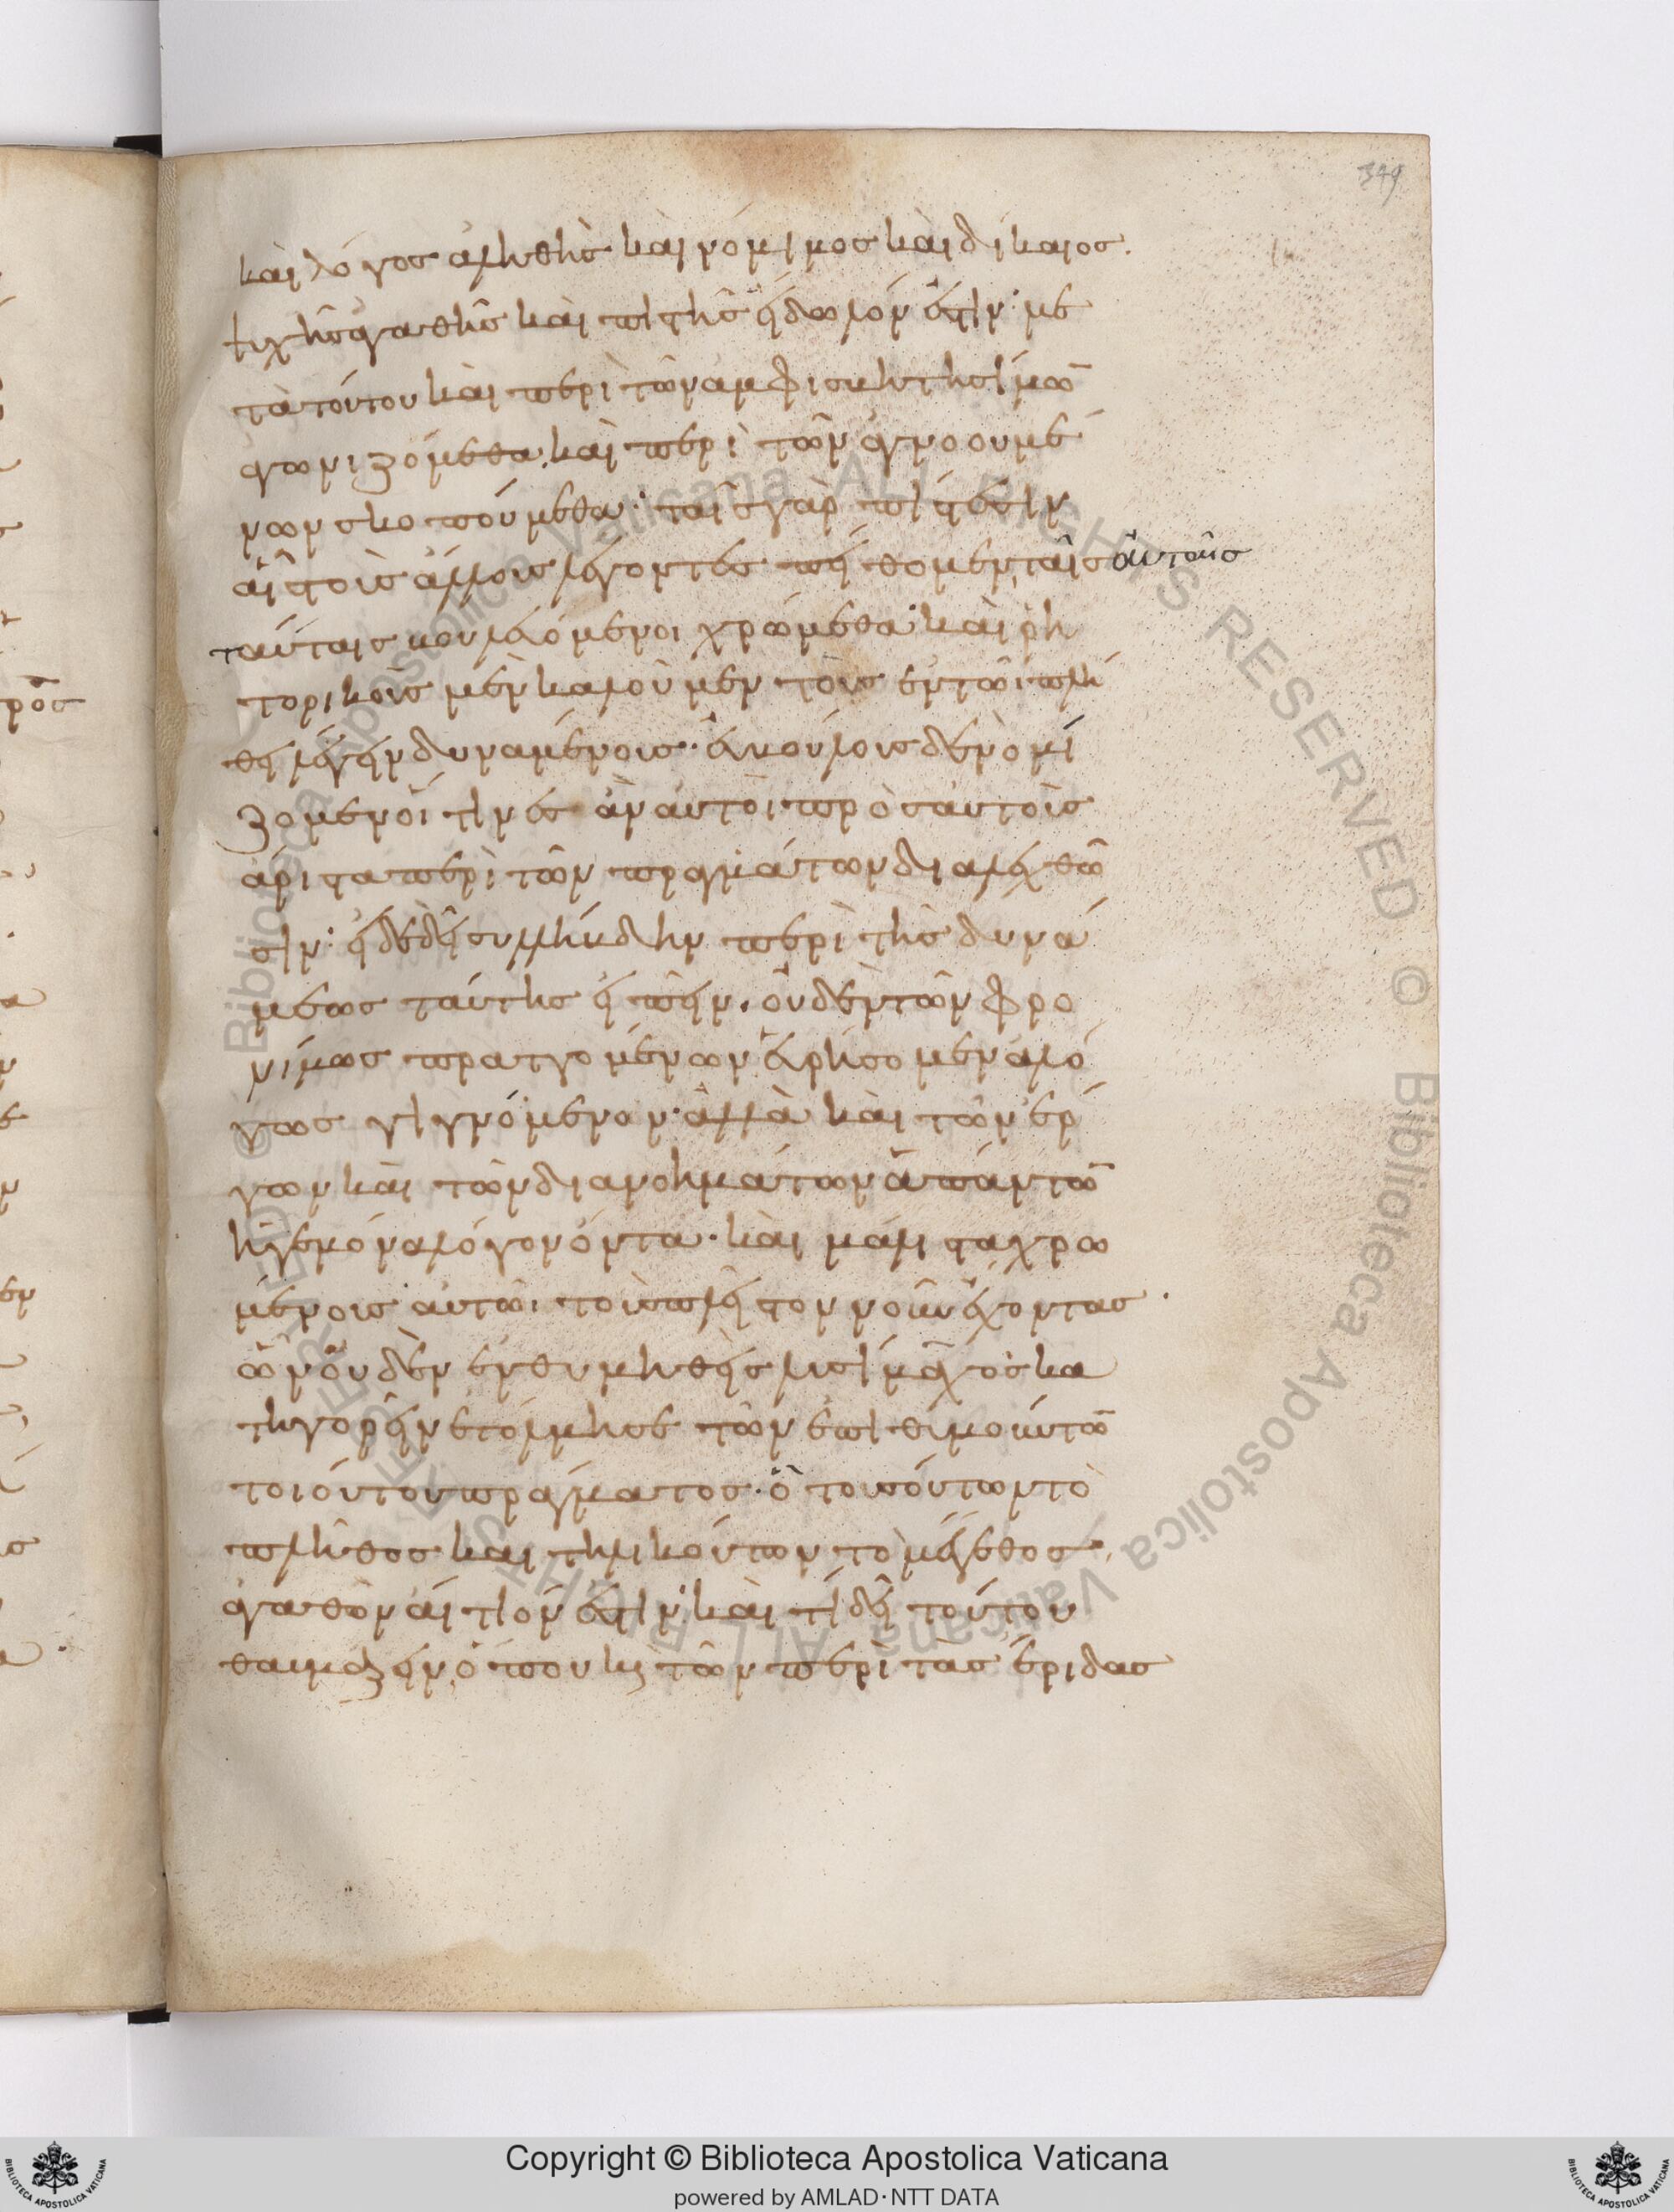 καὶ λόγος ἀληθὴς καὶ νόμιμος καὶ δίκαιος.
ψυχῆς ἀγαθῆς καὶ πιστῆς εἴδωλόν ἐστιν· με
τὰ τούτου καὶ περὶ τῶν ἀμφισβητησίμων
ἀγωνιζόμεθα, καὶ περὶ τῶν ἀγνοουμέ
νων σκοπούμεθα· ταῖς γὰρ πίστεσιν
αἷς τοὺς ἄλλους λέγοντες πείθομεν, ταῖς αὐταῖς
ταύταις βουλευόμενοι χρώμεθα· καὶ ῥη
τορικοὺς μὲν καλοῦμεν τοὺς ἐν τῶι πλή
θει λέγειν δυναμένους· εὐβούλους δὲ νομί
ζομεν οἵτινες ἂν αὐτοὶ πρὸς αὑτοὺς
ἄριστα περὶ τῶν πραγμάτων διαλεχθῶ
σιν· εἰ δὲ δεῖ συλλήβδην περὶ τῆς δυνά
μεως ταύτης εἰπεῖν, οὐδὲν τῶν φρο
νίμως πραττομένων εὑρήσομεν ἀλό
γως γιγνόμενον· ἀλλὰ καὶ τῶν ἔρ
γων καὶ τῶν διανοημάτων ἁπάντων
ἡγεμόνα λόγον ὄντα· καὶ μάλιστα χρω
μένους αὐτῶι τοὺς πλεῖστον νοῦν ἔχοντας.
ὧν οὐδὲν ἐνθυμηθεὶς λυσίμαχος κα
τηγορεῖν ἐτόλμησε τῶν ἐπιθυμούντων
τοιούτου πράγματος· ὃ τοσούτων τὸ
πλῆθος καὶ τηλικούτων τὸ μέγεθος,
ἀγαθῶν αἴτιόν ἐστιν· καὶ τί δεῖ τούτου
θαυμάζειν, ὅπου καὶ τῶν περὶ τὰς ἔριδας
349
Copyright © Biblioteca Apostolica Vaticana
powered by AMLAD·NTT DATA